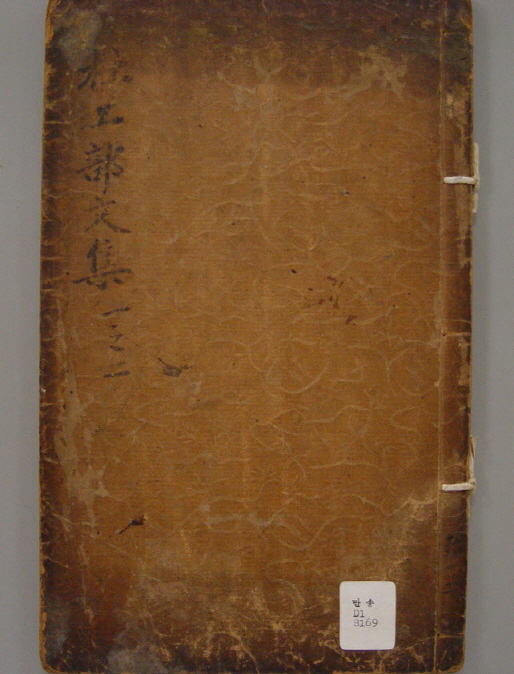 杜工部文集 一之二
만송
D1
B169